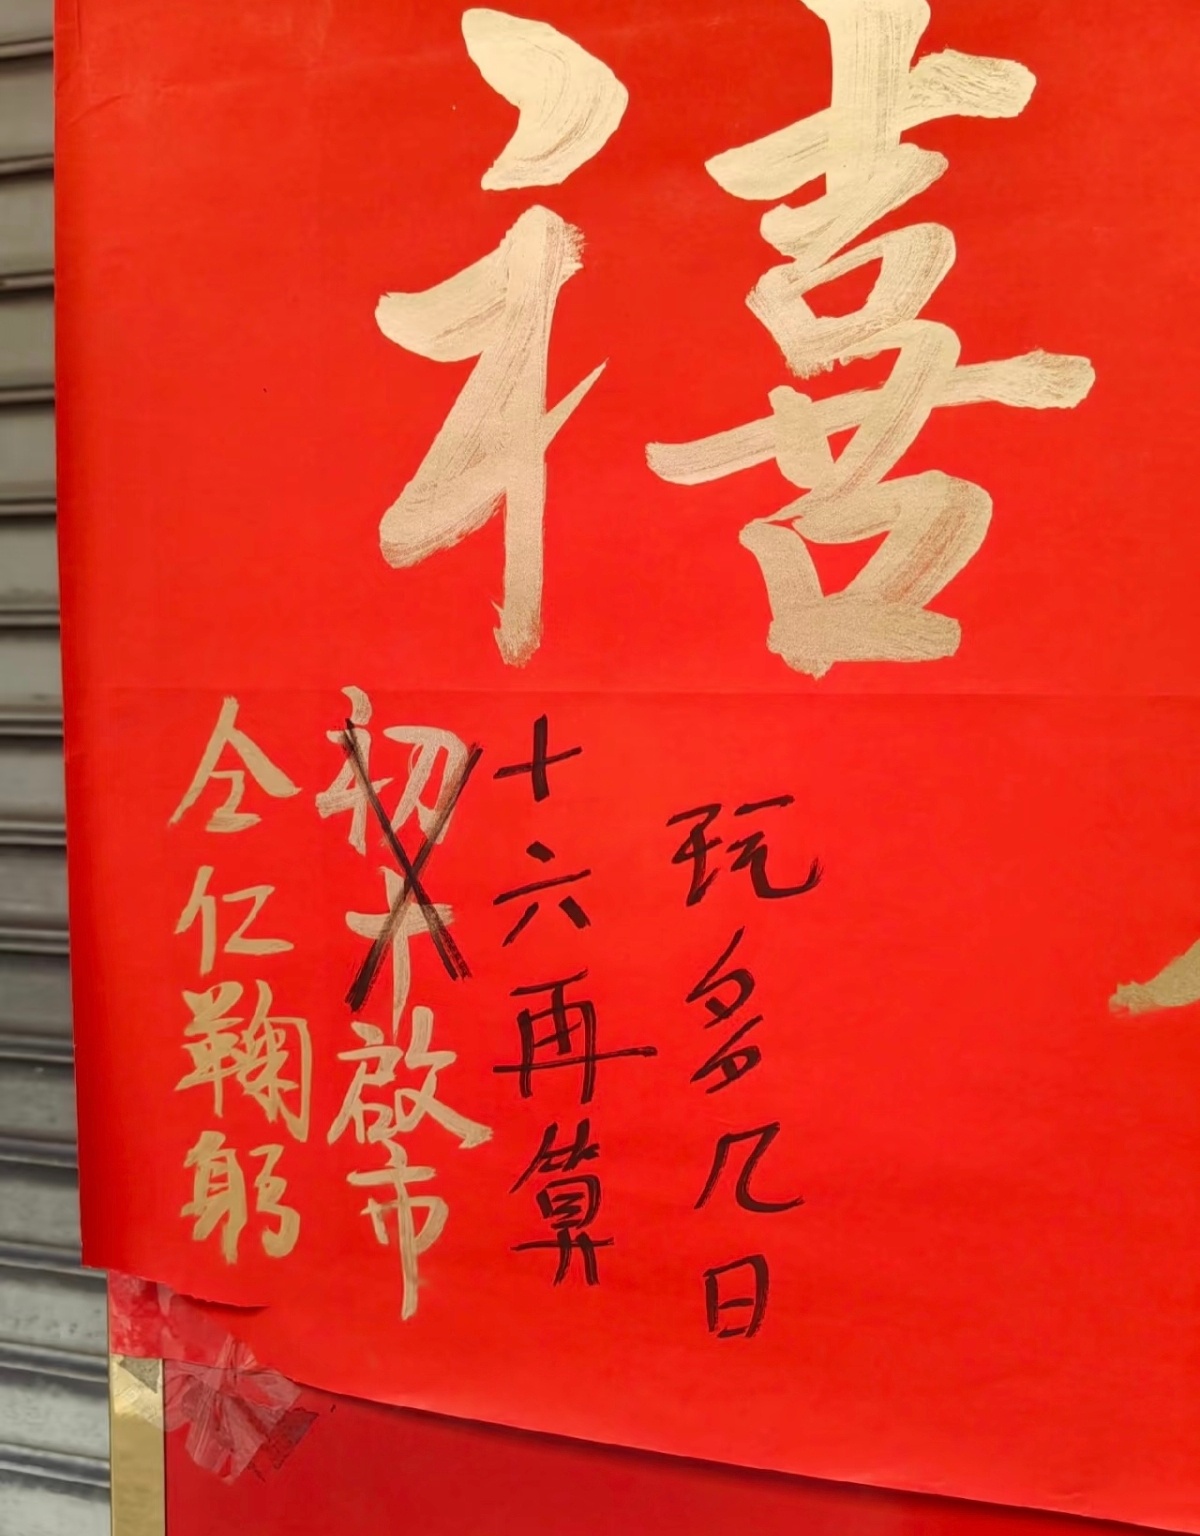 禧
玩多几日
十六再算
初十啟市
仝仁鞠躬